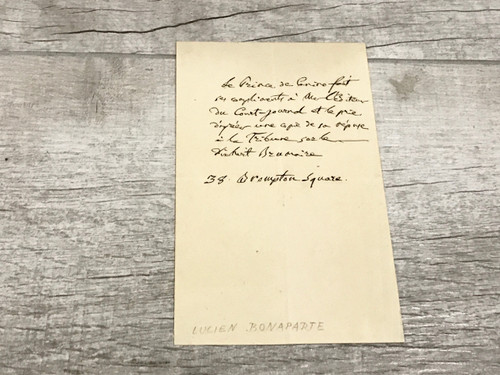 Le Prince de Canino fait
ses compliments à Mr l'Editeur
du Court-Journal et le prie
d'insérer une copie de sa réponse
à la Tribune sur le
Dixhuit Brumaire
38 Brompton Square.
LUCIEN BONAPARTE